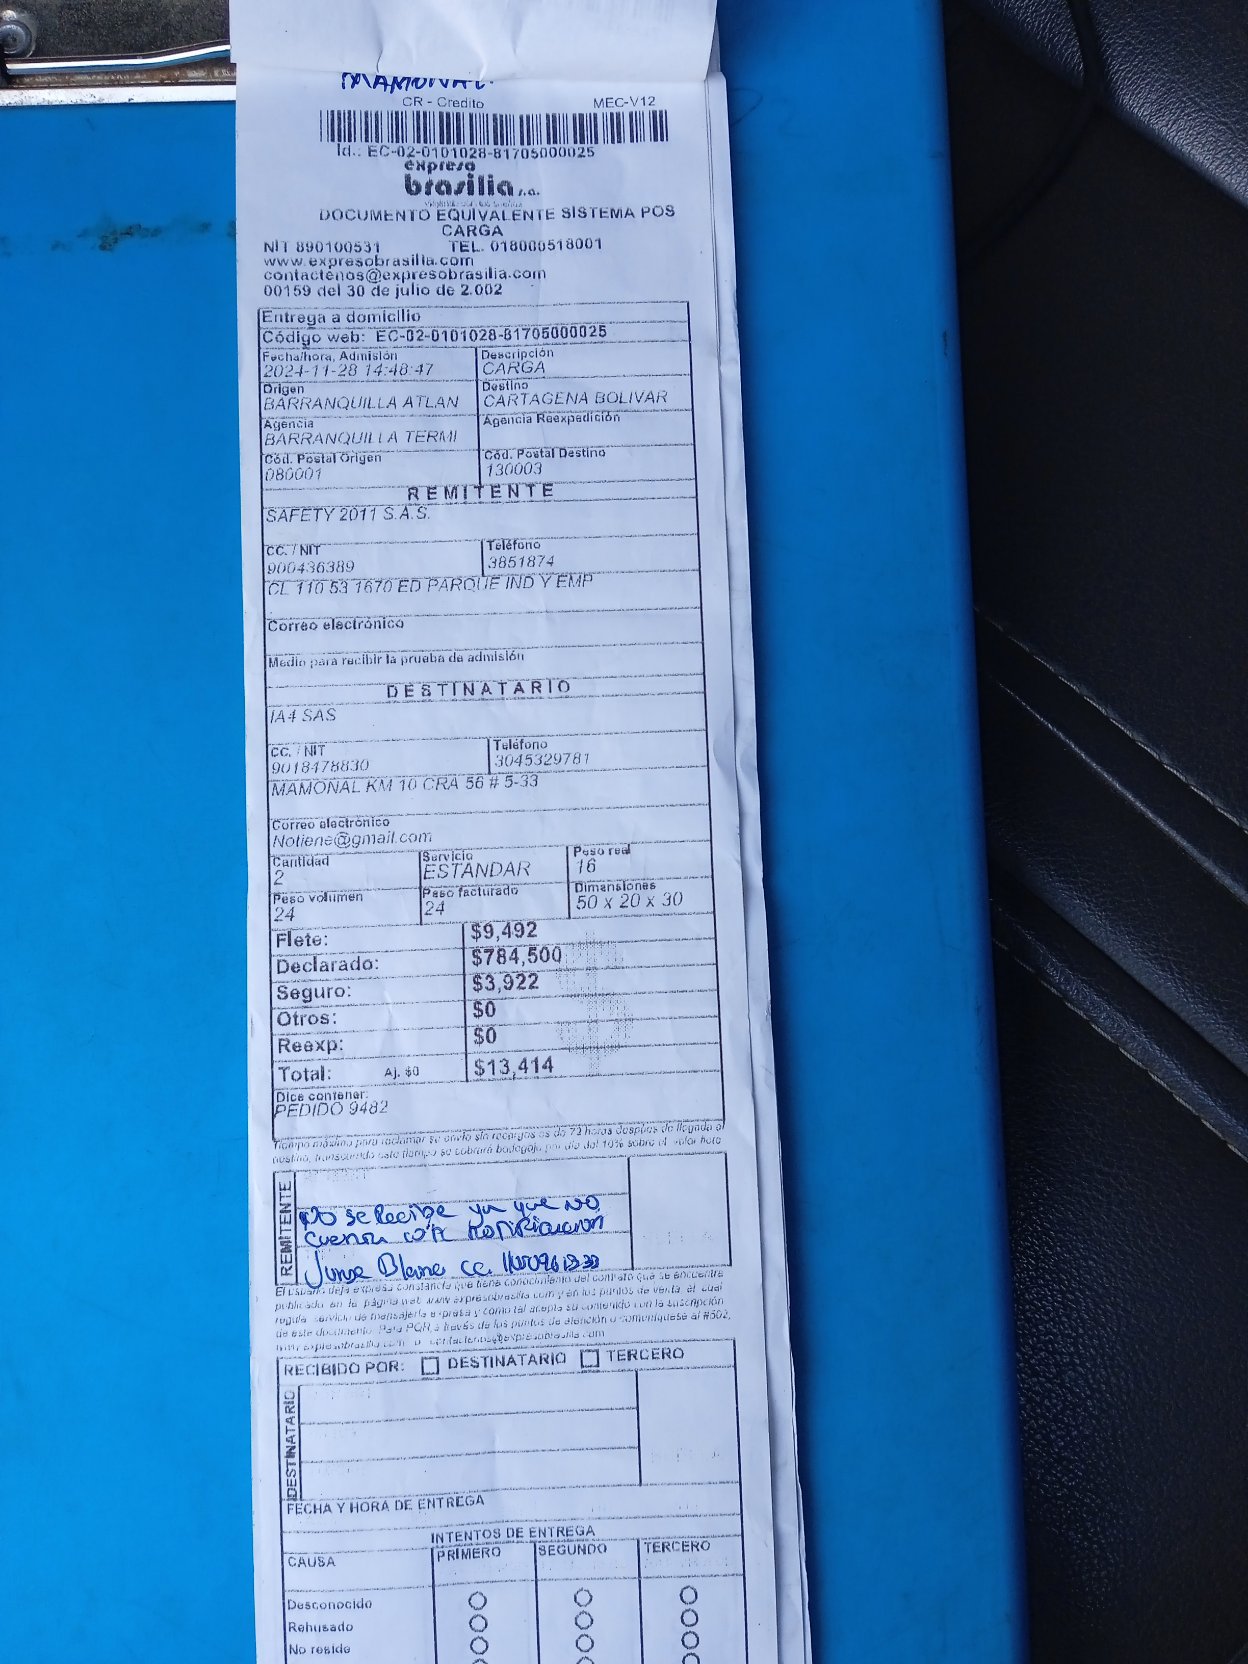 MAMONAL.
CR - Credito MEC-V12
Id.: EC-02-0101028-81705000025
expreso
brasilia s.a.
DOCUMENTO EQUIVALENTE SISTEMA POS
CARGA
NIT 890100531 TEL. 018000518001
www.expresobrasilia.com
contactenos@expresobrasilia.com
00159 del 30 de julio de 2.002
Entrega a domicilio
Código web: EC-02-0101028-81705000025
Fecha/hora, Admisión Descripción
2024-11-28 14:48:47 CARGA
Origen Destino
BARRANQUILLA ATLAN CARTAGENA BOLIVAR
Agencia Agencia Reexpedición
BARRANQUILLA TERMI
Cód. Postal Origen Cód. Postal Destino
080001 130003
REMITENTE
SAFETY 2011 S.A.S.
CC. / NIT Teléfono
900436389 3851874
CL 110 53 1670 ED PARQUE IND Y EMP
Correo electrónico
Medio para recibir la prueba de admisión
DESTINATARIO
IA4 SAS
CC. / NIT Teléfono
9018478830 3045329781
MAMONAL KM 10 CRA 56 # 5-33
Correo electrónico
Notiene@gmail.com
Cantidad Servicio Peso real
2 ESTANDAR 16
Peso volumen Peso facturado Dimensiones
24 24 50 x 20 x 30
Flete: $9,492
Declarado: $784,500
Seguro: $3,922
Otros: $0
Reexp: $0
Total: Aj. $0 $13,414
Dice contener:
PEDIDO 9482
Tiempo máximo para reclamar su envío sin recargos es de 72 horas después de llegada al
destino, transcurrido este tiempo se cobrará bodegaje por día del 10% sobre el valor flete
REMITENTE
No se Recibe ya que no
cuenta con notificacion
CC.
El usuario deja expresa constancia que tiene conocimiento del contrato que se encuentra
publicado en la página web www.expresobrasilia.com y en los puntos de venta, el cual
regula servicio de mensajería expresa y como tal acepta su contenido con la suscripción
de este documento. Para PQR a través de los puntos de atención o comuníquese al #502,
www.expresobrasilia.com o contactenos@expresobrasilia.com
RECIBIDO POR: DESTINATARIO TERCERO
DESTINATARIO
FECHA Y HORA DE ENTREGA
INTENTOS DE ENTREGA
CAUSA PRIMERO SEGUNDO TERCERO
Desconocido
Rehusado
No reside